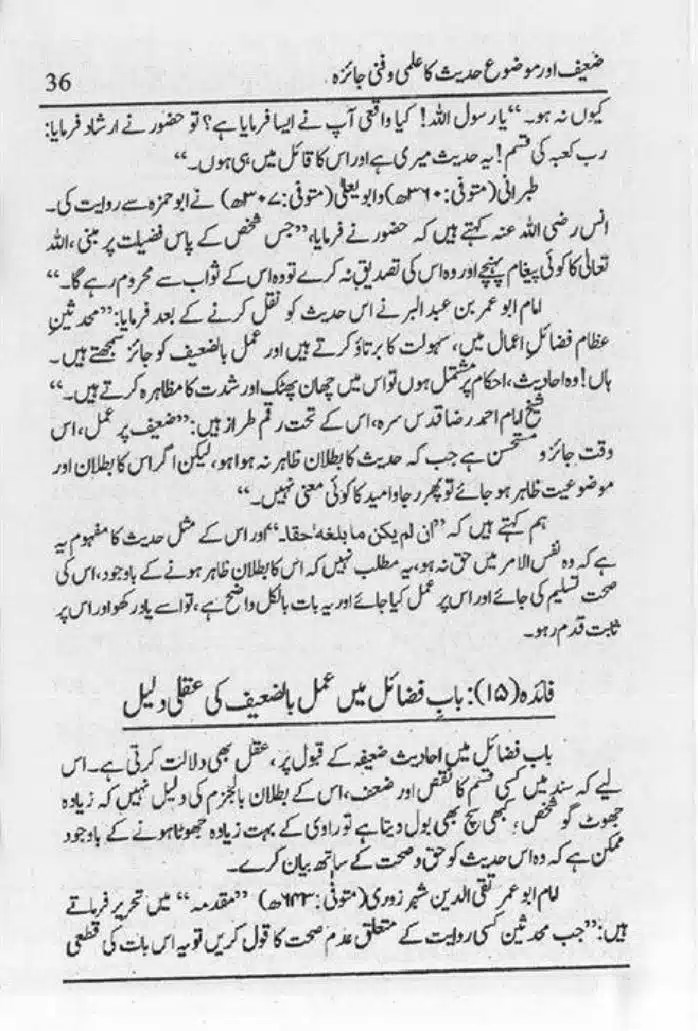 ضعیف اور موضوع حدیث کا علمی و فنی جائزہ
36
کیوں نہ ہو۔ “یا رسول اللہ! کیا واقعی آپ نے ایسا فرمایا ہے؟ تو حضور نے ارشاد فرمایا:
رب کعبہ کی قسم! یہ حدیث میری ہے اور اس کا قائل میں ہی ہوں۔“
طبرانی (متوفی: ۳۶۰ھ) و ابو یعلیٰ (متوفی: ۳۰۷ھ) نے ابو حمزہ سے روایت کی۔
انس رضی اللہ عنہ کہتے ہیں کہ حضور نے فرمایا، ”جس شخص کے پاس فضیلت پر مبنی، اللہ
تعالیٰ کا کوئی پیغام پہنچے اور وہ اس کی تصدیق نہ کرے تو وہ اس کے ثواب سے محروم رہے گا۔“
امام ابو عمر بن عبد البر نے اس حدیث کو نقل کرنے کے بعد فرمایا: ”محدثینِ
عظام فضائلِ اعمال میں، سہولت کا برتاؤ کرتے ہیں اور عمل بالضعیف کو جائز سمجھتے ہیں۔
ہاں! وہ احادیث، احکام پر مشتمل ہوں تو اس میں چھان پھٹک اور شدت کا مظاہرہ کرتے ہیں۔“
شیخ امام احمد رضا قدس سرہ، اس کے تحت رقم طراز ہیں: ”ضعیف پر عمل، اس
وقت جائز و مستحسن ہے جب کہ حدیث کا بطلان ظاہر نہ ہوا ہو، لیکن اگر اس کا بطلان اور
موضوعیت ظاہر ہو جائے تو پھر رجا و امید کا کوئی معنی نہیں۔“
ہم کہتے ہیں کہ ”ان لم یکن ما بلغہ حقا۔“ اور اس کے مثل حدیث کا مفہوم یہ
ہے کہ وہ نفس الامر میں حق نہ ہو، یہ مطلب نہیں کہ اس کا بطلان ظاہر ہونے کے باوجود، اس کی
صحت تسلیم کی جائے اور اس پر عمل کیا جائے اور یہ بات بالکل واضح ہے، تو اسے یاد رکھو اور اس پر
ثابت قدم رہو۔
فائدہ (۱۵): بابِ فضائل میں عمل بالضعیف کی عقلی دلیل
باب فضائل میں احادیث ضعیفہ کے قبول پر، عقل بھی دلالت کرتی ہے۔ اس
لیے کہ سند میں کسی قسم کا نقص اور ضعف، اس کے بطلان بالجزم کی دلیل نہیں کہ زیادہ
جھوٹ گو شخص، کبھی سچ بھی بول دیتا ہے تو راوی کے بہت زیادہ جھوٹا ہونے کے باوجود
ممکن ہے کہ وہ اس حدیث کو حق و صحت کے ساتھ بیان کرے۔
امام ابو عمر تقی الدین شہر زوری (متوفی: ۶۴۳ھ) ”مقدمہ“ میں تحریر فرماتے
ہیں: ”جب محدثین کسی روایت کے متعلق عدم صحت کا قول کریں تو یہ اس بات کی قطعی